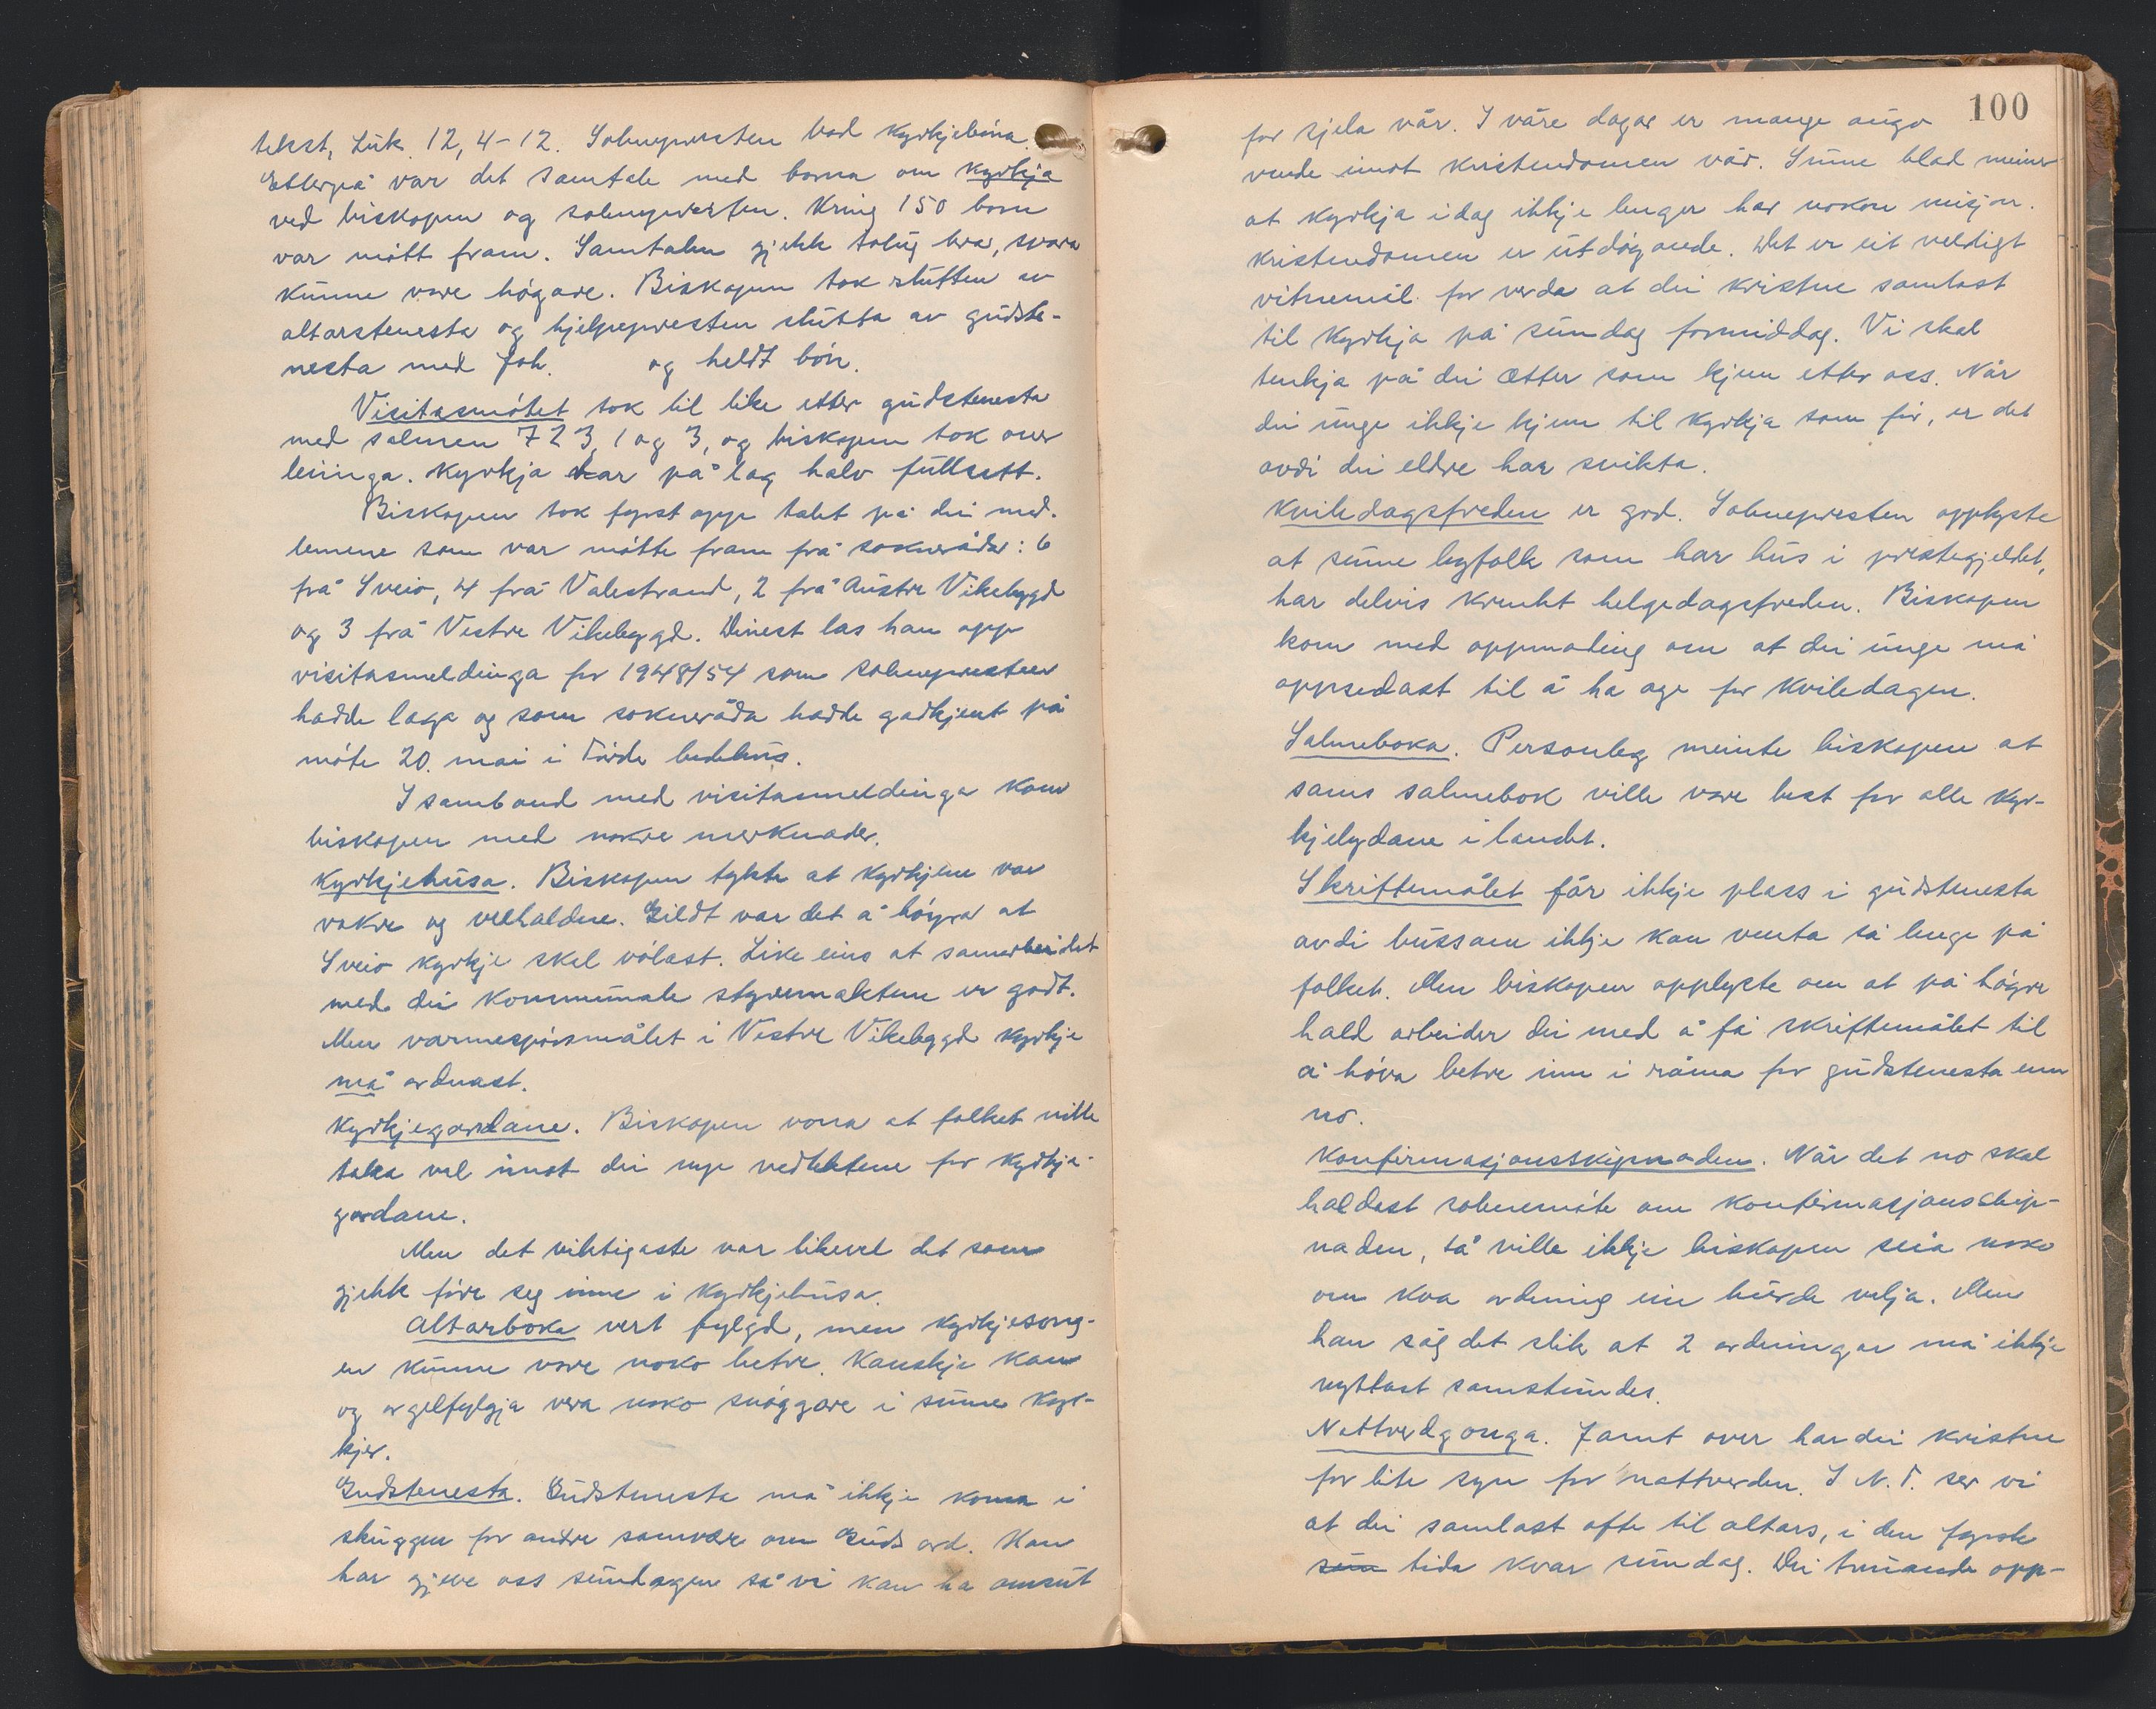 tekst, Luk. 12, 4-12. Sokneprestern bad kyrkjebøna.
Etterpå var det samtale med borna om kyrkja
ved biskopen og soknepresten. Kring 150 born
var møtt fram. Samtalen gjekk tolug bra, svara
kunne vore høgare. Biskopen tok slutten av
altartenesta og hjelpepresten slutta av gudste-
nesta med Joh. og heldt bøn.
Visitasmøtet tok til like etter gudstenesta
med salmen 723, 1 og 3, og biskopen tok over
leiinga. Kyrkja var på lag halv fullsett.
Biskopen tok fyrst opp talet på dei med-
lemene som var møtte fram frå sokneråda: 6
frå Sveio, 4 frå Valestrand, 2 frå Austre Vikebygd
og 3 frå Vestre Vikebygd. Dinest las han opp
visitasmeldinga for 1948/54 som soknepresten
hadde laga og som sokneråda hadde godkjent på
møte 20. mai i Førde bedehus.
I samband med visitasmeldinga kom
biskopen med nokre merknader.
Kyrkjehusa. Biskopen tykte at kyrkjene var
vakre og velhaldne. Gildt var det å høyra at
Sveio kyrkje skal vølast. Like eins at samarbeidet
med dei kommunale styremaktene er godt.
Men varmespørsmålet i Vestre Vikebygd kyrkje
må ordnast.
Kyrkjegardane. Biskopen vona at folket ville
taka vel imot dei nye vedtektene for kyrkje-
gardane.
Men det viktigaste var likevel det som
gjekk føre seg inne i kyrkjehusa.
Altarboka vert fylgd, men kyrkjesong-
en kunne vore noko betre. Kanskje kan
og orgelfylgja vera noko snøggare i sume kyr-
kjer.
Gudstenesta. Gudstenesta må ikkje koma i
skuggen for andre samvære om Guds ord. Han
har gjeve oss sundagen så vi kan ha omsut
100
for sjela vår. I våre dagar er mange augo
vende imot kristendomen vår. Sume blad meiner
at kyrkja idag ikkje lenger har nokon misjon.
Kristendomen er utdøyande. Det er eit veldigt
vitnemål for verda at dei kristne samlast
til kyrkja på sundag formiddag. Vi skal
tenkja på dei ætter som kjem etter oss. Når
dei unge ikkje kjem til kyrkja som før, er det
avdi dei eldre har svikta.
Kviledagsfreden er god. Soknepresten opplyste
at sume byfolk som har hus i prestegjeldet,
har delvis krenkt helgedagsfreden. Biskopen
kom med oppmoding om at dei unge må
oppsedast til å ha age for kviledagen.
Salmeboka. Personleg meinte biskopen at
sams salmebok ville vere best for alle kyr-
kjelydane i landet.
Skriftemålet får ikkje plass i gudstenesta
avdi bussane ikkje kan venta så lenge på
folket. Men biskopen opplyste om at på høgre
hald arbeider dei med å få skriftemålet til
å høva betre inn i råma for gudstenesta enn
no.
Konfirmasjonsskipnaden. Når det no skal
haldast soknemøte om konfirmasjonsskip-
naden, så ville ikkje biskopen seia noko
om kva ordning ein burde velja. Men
han såg det slik at 2 ordningar må ikkje
nyttast samstundes.
Nattverdgonga. Jamt over har dei kristne
for lite syn for nattverden. I N.T. ser vi
at dei samlast ofte til altars, i den fyrste
tida kvar sundag. Dei truande opp-